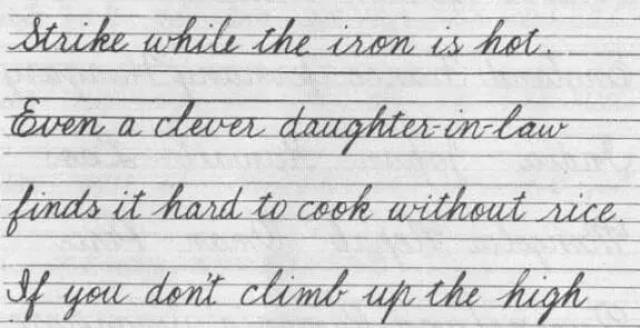 Strike while the iron is hot.
Even a clever daughter-in-law
finds it hard to cook without rice.
If you don't climb up the high